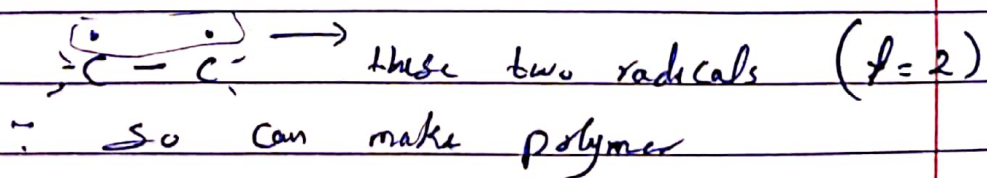 C - C → these two radicals (f = 2)
∴ so can make polymer